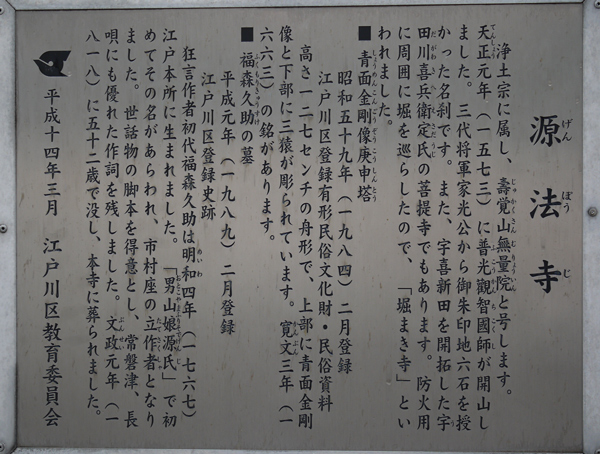 源法寺
げんぽうじ
浄土宗に属し、壽覚山無量院と号します。
天正元年（一五七三）に普光觀智國師が開山し
ました。三代将軍家光公から御朱印地六石を授
かった名刹です。また、宇喜新田を開拓した宇
田川喜兵衛定氏の菩提寺でもあります。防火用
に周囲に堀を巡らしたので、「堀まき寺」とい
われました。
■青面金剛像庚申塔
昭和五十九年（一九八四）二月登録
江戸川区登録有形民俗文化財・民俗資料
高さ一二七センチの舟形で、上部に青面金剛
像と下部に三猿が彫られています。寛文三年（一
六六三）の銘があります。
■福森久助の墓
平成元年（一九八九）二月登録
江戸川区登録史跡
狂言作者初代福森久助は明和四年（一七六七）
江戸本所に生まれました。「男山娘源氏」で初
めてその名があらわれ、市村座の立作者となり
ました。世話物の脚本を得意とし、常磐津、長
唄にも優れた作詞を残しました。文政元年（一
八一八）に五十二歳で没し、本寺に葬られました。
平成十四年三月　江戸川区教育委員会